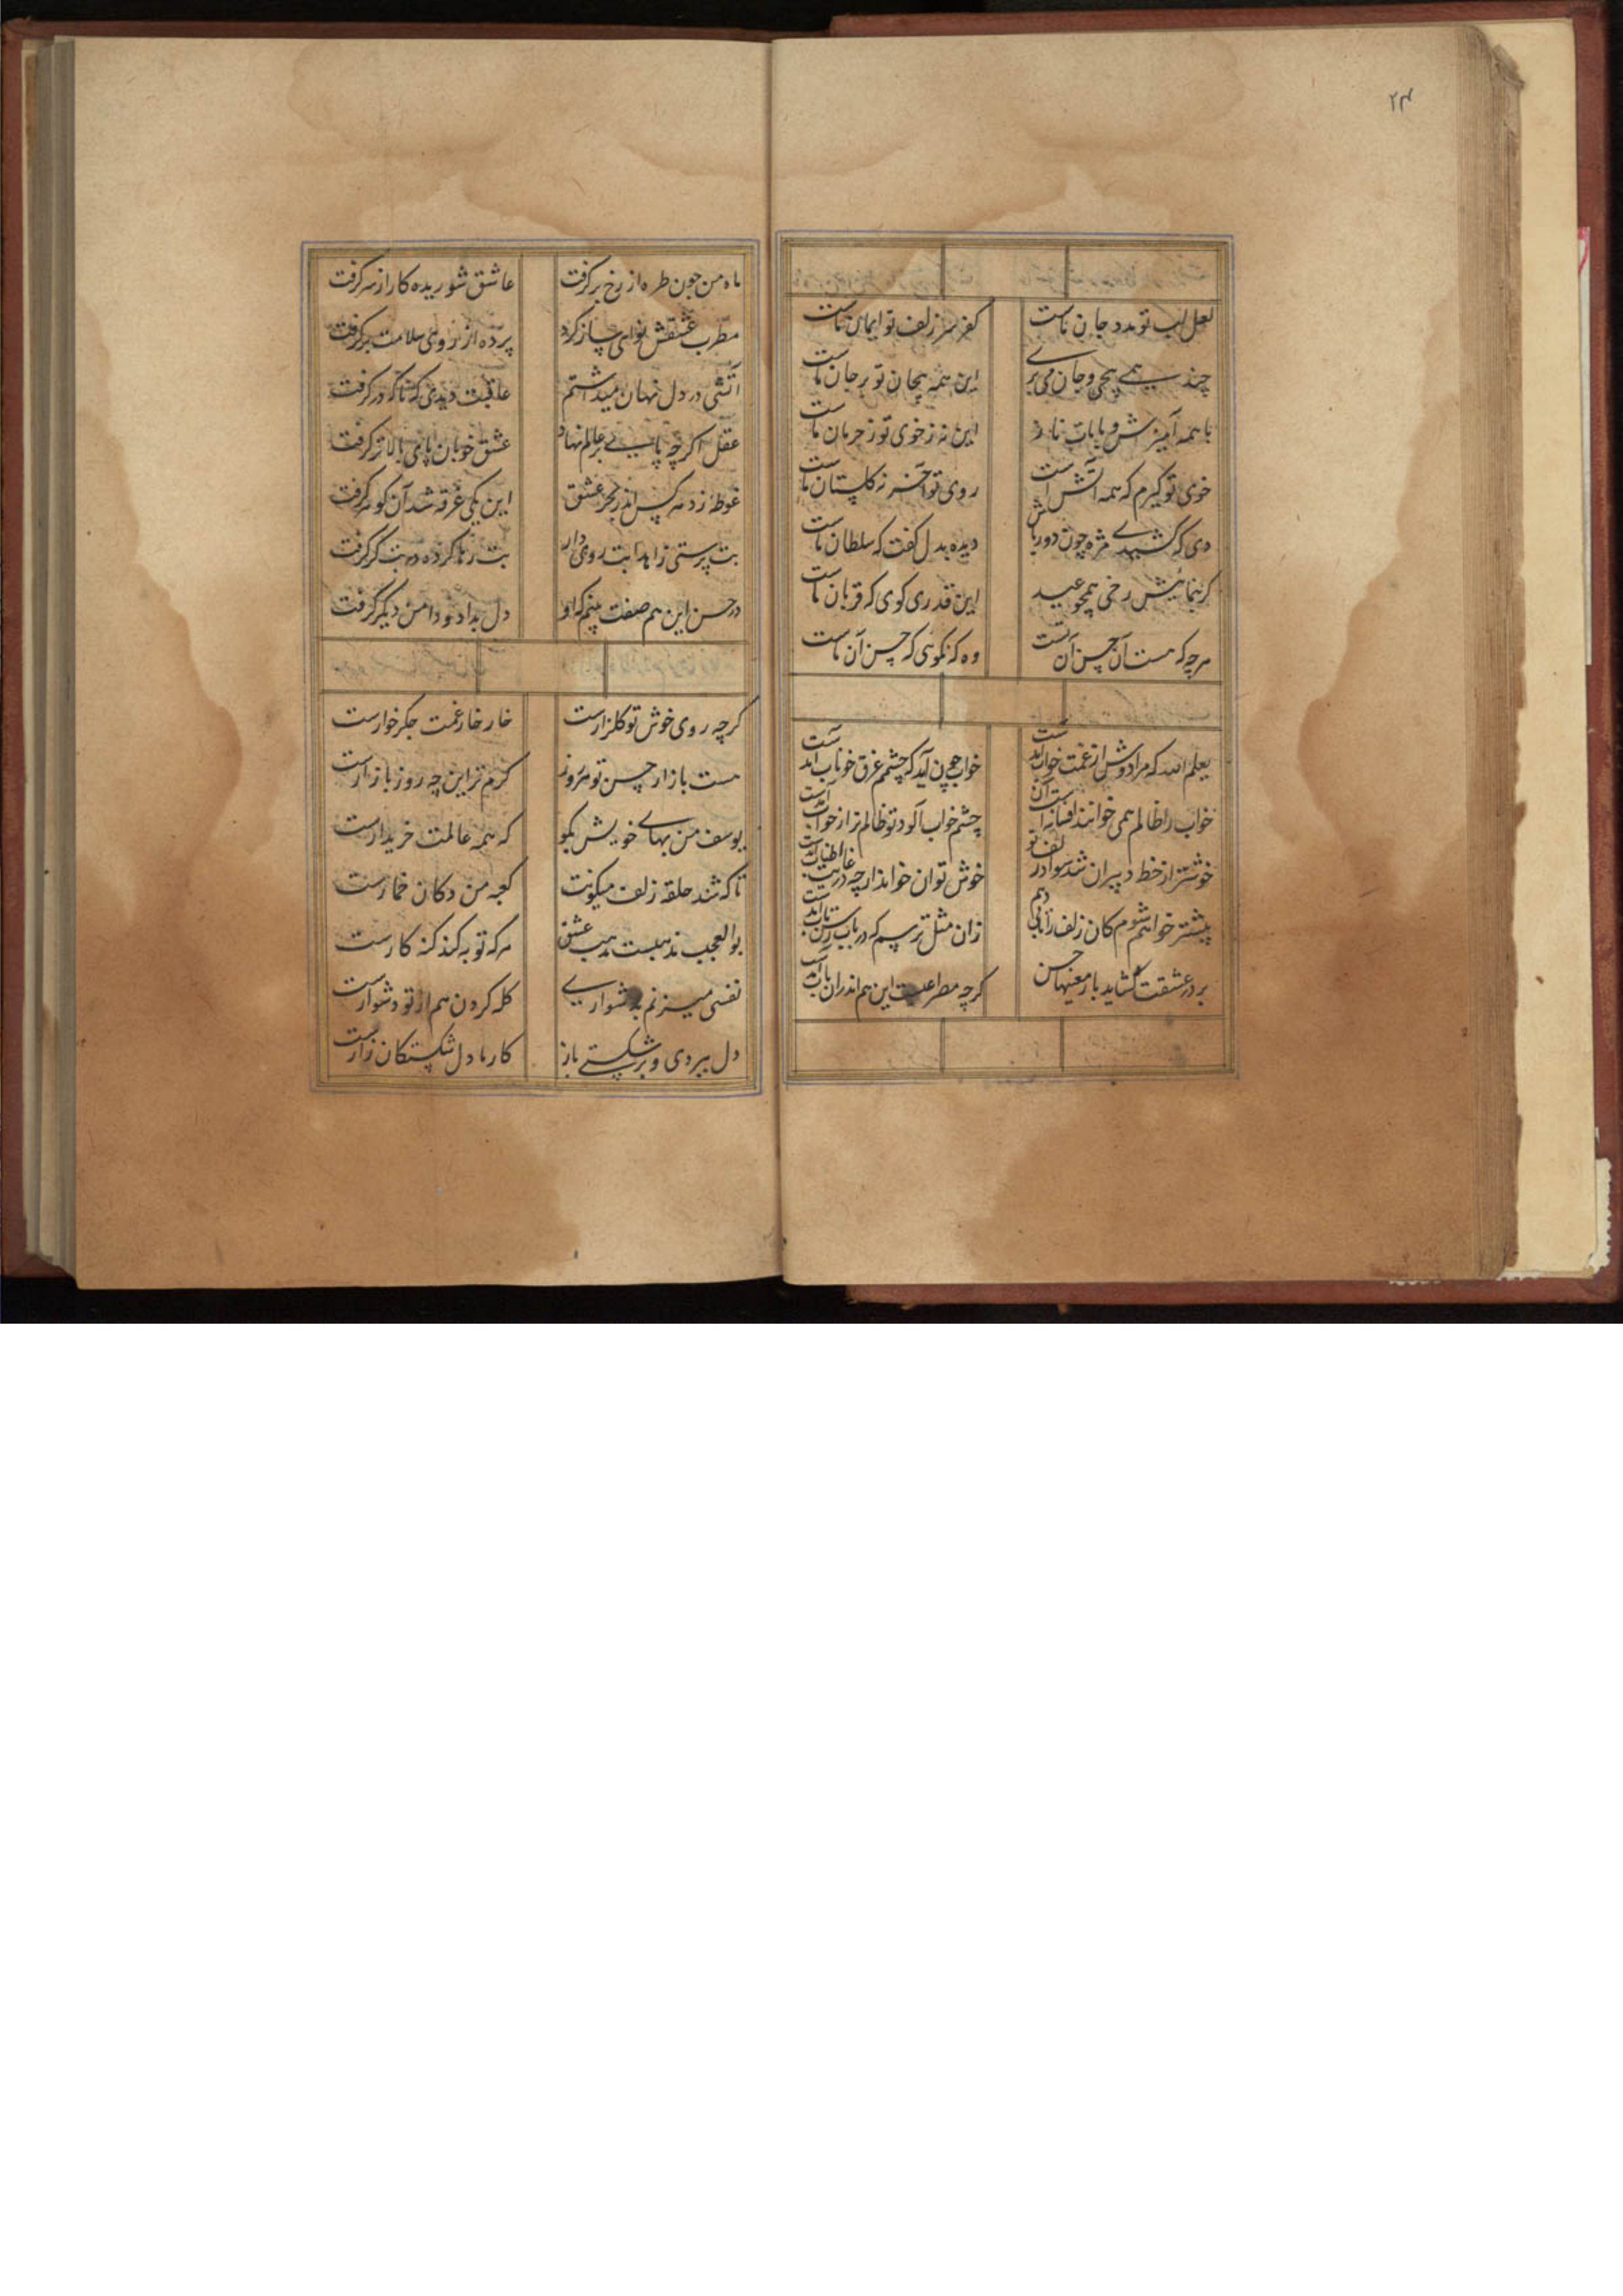 ۲۴
لعل لب تو مدد جان ماست کفر سر زلف تو ایمان ماست
چند همی پیچی و جان می بری این همه پیچان تو بر جان ماست
با همه آمیزش و با مات ناز این نه ز خوی تو ز حرمان ماست
خوی تو گیرم که همه آتش است روی تو آخر نه گلستان ماست
دی که کشیدی مژه چون دور باش دیده بدل گفت که سلطان ماست
گر بنمائیش رخی همچو عید این قدری گوی که قربان ماست
هرچه که هست آن حسن آن تست وه که نگوئی که حسن آن ماست
یعلم الله که مرا دوش از غمت خواب آمدست خواب چون آید که چشمم غرق خوناب آمدست
خواب را ظالم همی خوانند افسانه است آن چشم خواب آلود تو ظالم تر از خواب آمدست
خوشتر از خط دبیران شد سواد زلف تو خوش توان خواند ار چه در اطناب آمدست
پیشتر خواهم شوم کان زلف را تابی دهم زان مثل ترسم که در باب رسن تاب آمدست
بر در عشقت گشاید بار معنیها حسن گرچه مصراعیست این هم اندران باب آمدست
ماه من چون طره از رخ برگرفت عاشق شوریده کار از سر گرفت
مطرب عشقش نوای ساز کرد پرده از روی سلامت برگرفت
آتشی در دل نهان میداشتم عاقبت دیدی که ناگه در گرفت
عقل اگرچه پای بر عالم نهاد عشق خوبان پای بالاتر گرفت
غوطه زد هر کس اندر بحر عشق این یکی غرقه شد آن گوهر گرفت
بت پرستی زاهدا بت روی دار بت رها کرده در بتگر گرفت
در حسن این هم صفت بینم که او دل بداد و دامن دیگر گرفت
گرچه روی خوش تو گلزارست خار خار غمت جگر خوارست
هست بازار حسن تو امروز گرم تر این چه روز بازارست
یوسف من بهای خویش بگو که همه عالمت خریدارست
تا که شد حلقه زلف میگونت کعبه من دکان خمارست
بوالعجب مذهبست مذهب عشق هر که توبه کند گنه کارست
نفسی میزنم بدشواری گله کردن هم از تو دشوارست
دل ببردی و برشکستی باز کار ما دل شکستگان زارست